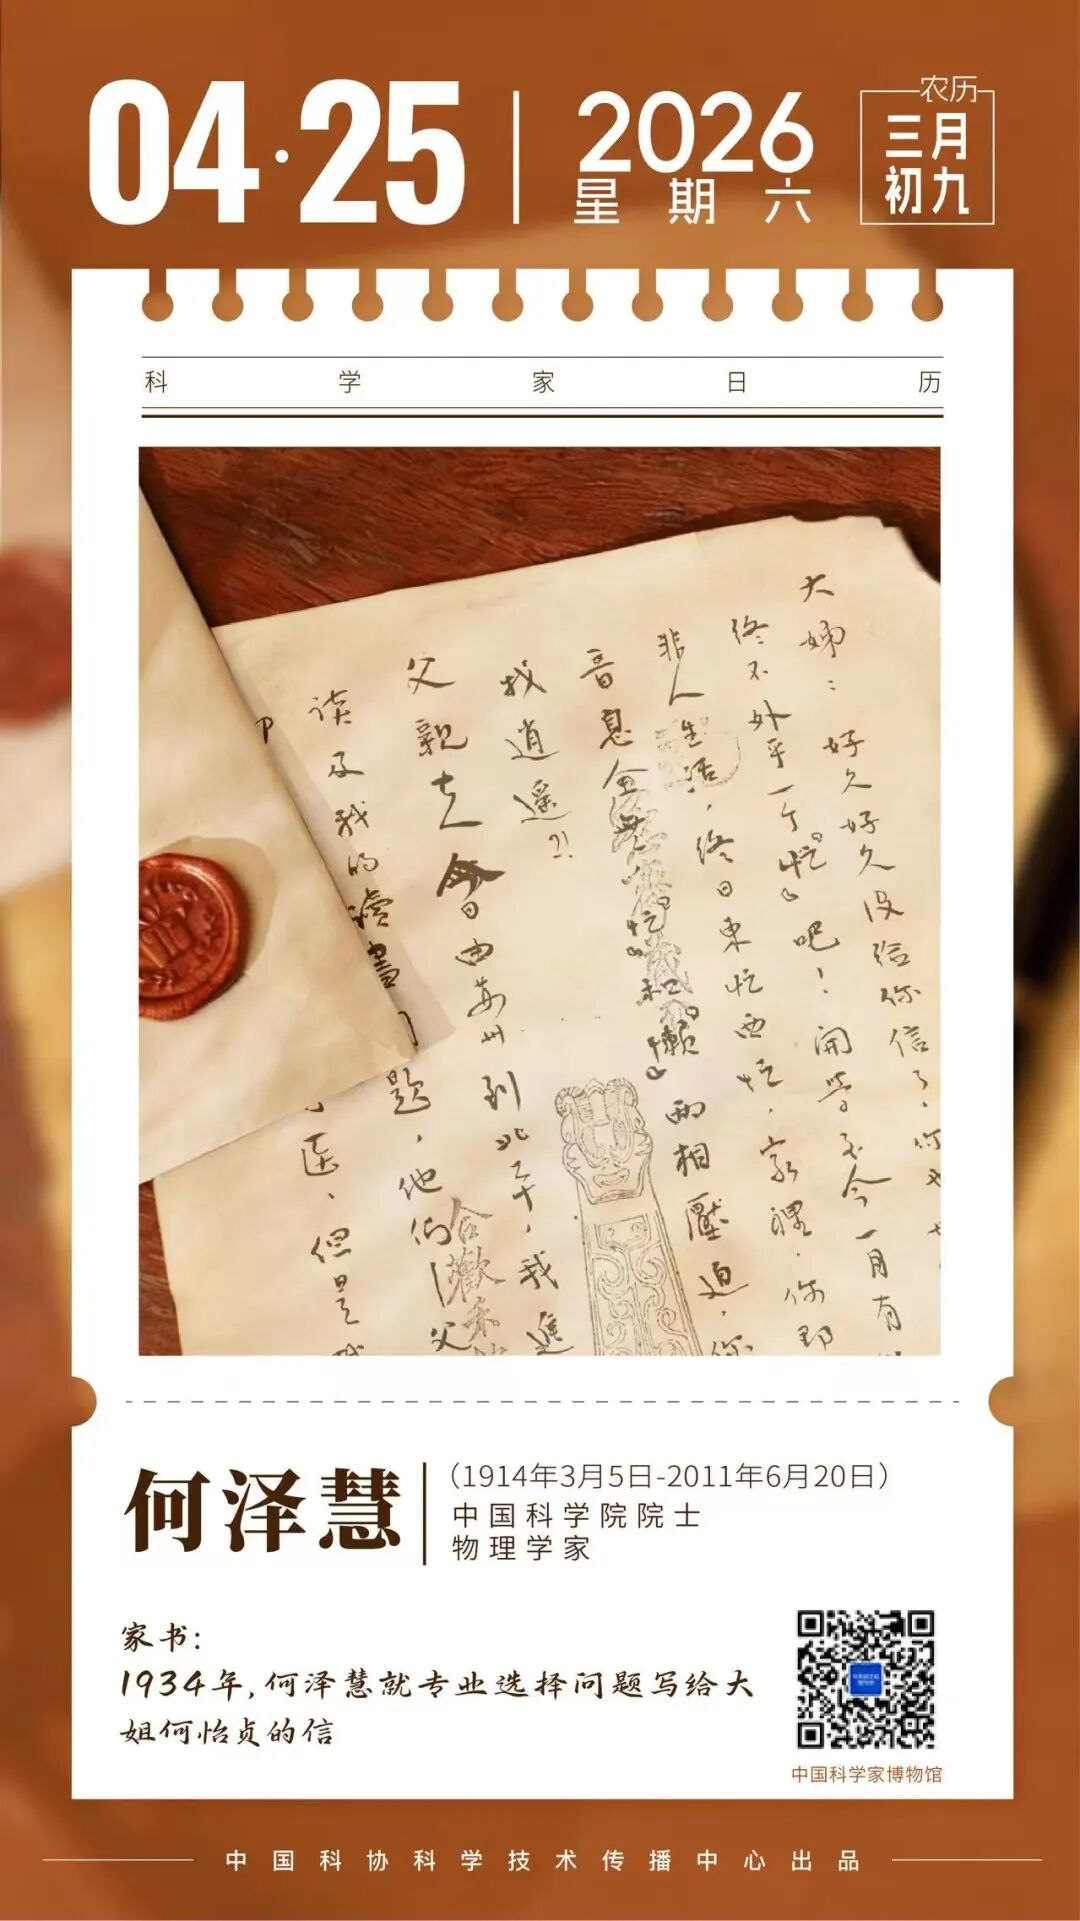 04·25
2026
星期六
农历
三月
初九
科学家日历
大姊：好久好久没给你信了，你
终不外乎一个『忙』吧！開学至今一月有
非人生活，终日東忙西忙，家裡，你那
音息全無『忙』和『懒』兩相壓迫，你
找道遥？！
父親大人今日由苏州到北平，我進
读及我的讀書问题，他们
医，但是我
何泽慧
（1914年3月5日-2011年6月20日）
中国科学院院士
物理学家
家书：
1934年，何泽慧就专业选择问题写给大
姐何怡贞的信
中国科学家博物馆
中国科协科学技术传播中心出品